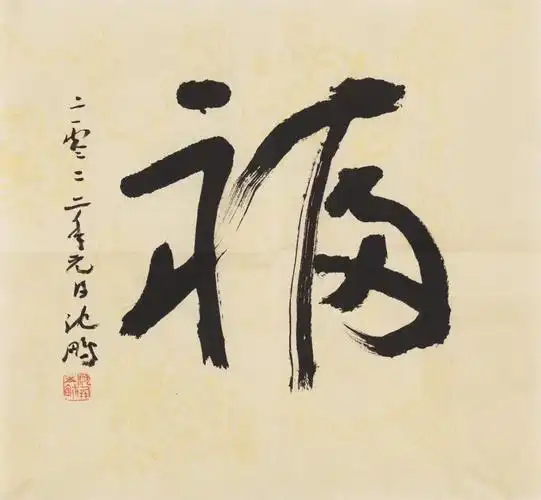 福
二零二二年元日沈鹏